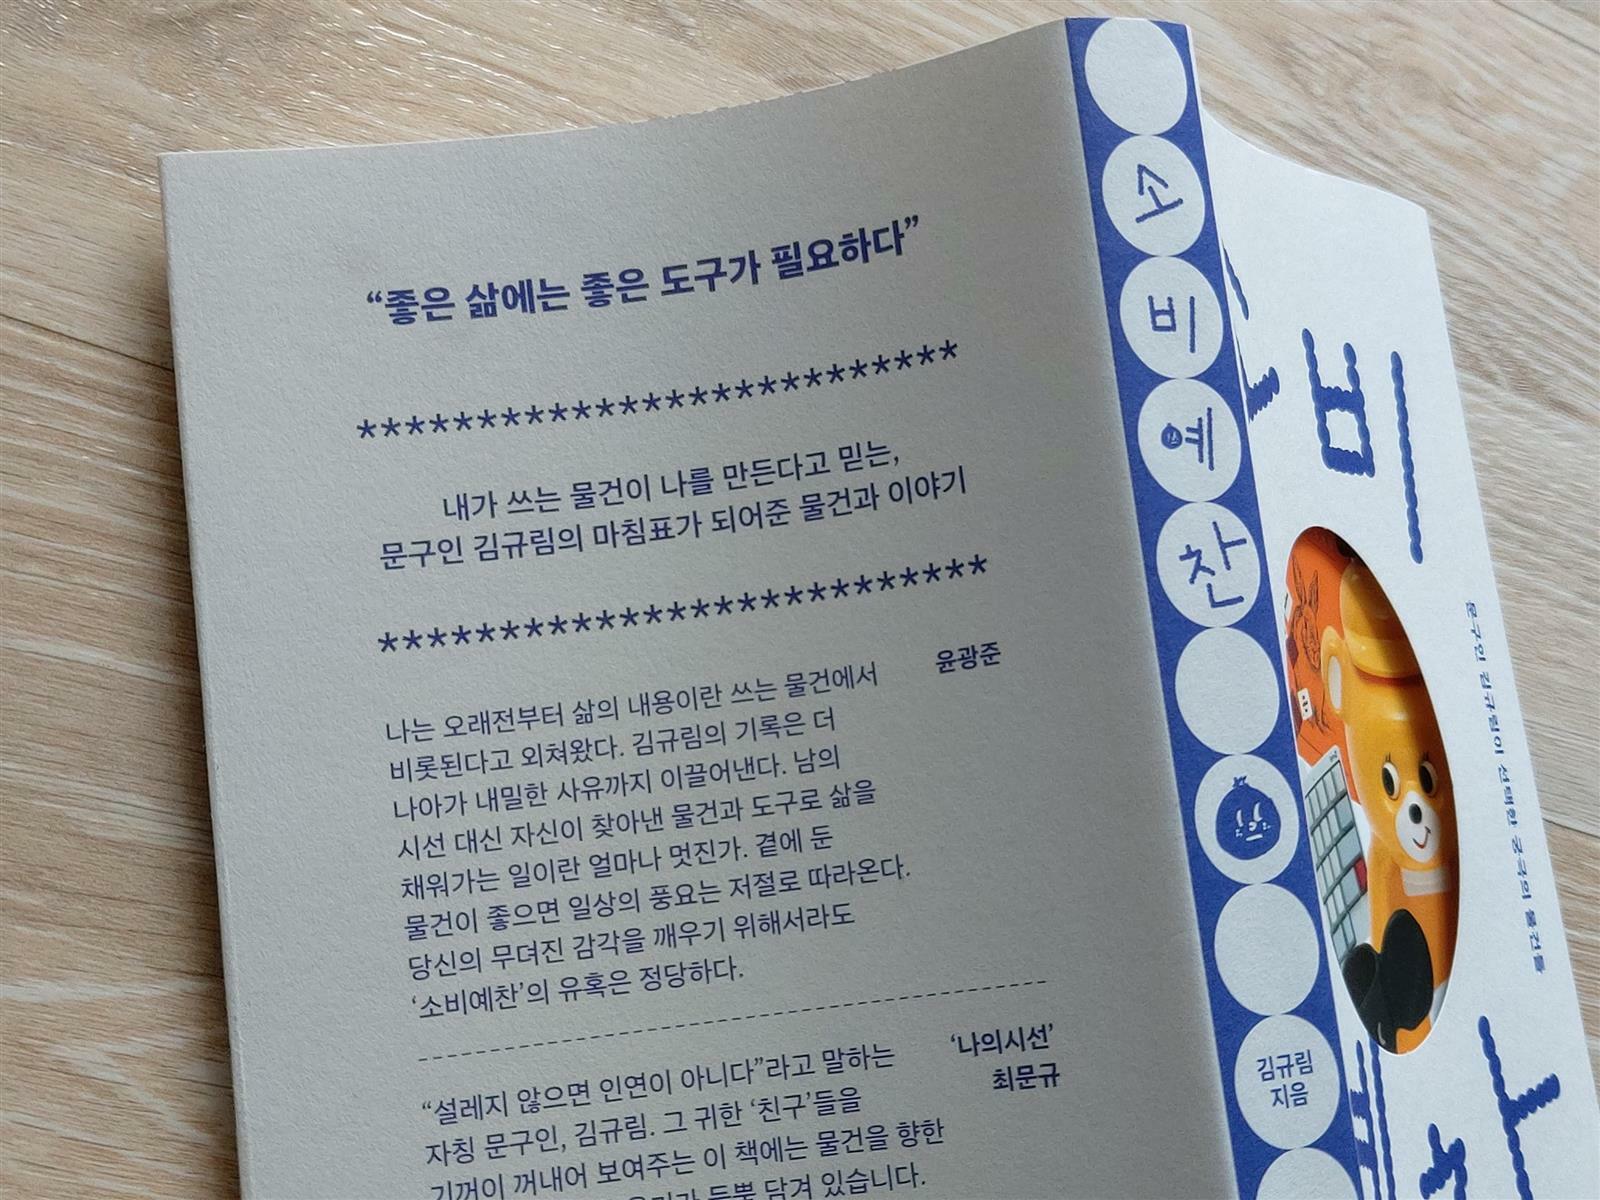 “좋은 삶에는 좋은 도구가 필요하다”
*************************
내가 쓰는 물건이 나를 만든다고 믿는,
문구인 김규림의 마침표가 되어준 물건과 이야기
*************************
윤광준
나는 오래전부터 삶의 내용이란 쓰는 물건에서
비롯된다고 외쳐왔다. 김규림의 기록은 더
나아가 내밀한 사유까지 이끌어낸다. 남의
시선 대신 자신이 찾아낸 물건과 도구로 삶을
채워가는 일이란 얼마나 멋진가. 곁에 둔
물건이 좋으면 일상의 풍요는 저절로 따라온다.
당신의 무뎌진 감각을 깨우기 위해서라도
‘소비예찬’의 유혹은 정당하다.
‘나의시선’
최문규
“설레지 않으면 인연이 아니다”라고 말하는
자칭 문구인, 김규림. 그 귀한 ‘친구’들을
기꺼이 꺼내어 보여주는 이 책에는 물건을 향한
듬뿍 담겨 있습니다.
소비예찬
김규림
지음
비
문구인 김규림이 선택한 궁극의 물건들